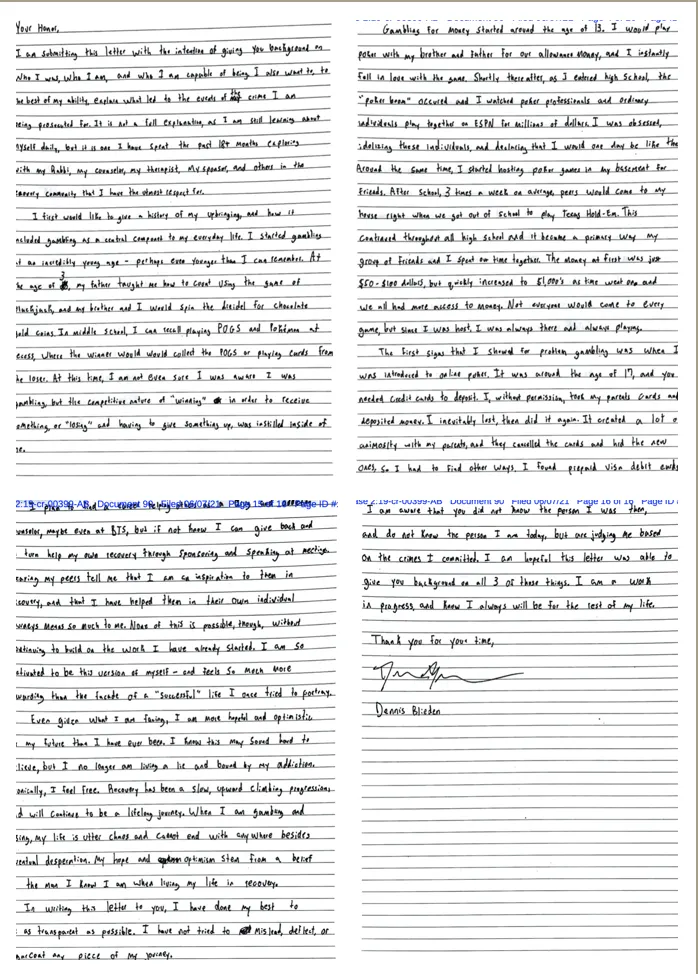 Your Honor,
I am submitting this letter with the intention of giving you background on
who I was, who I am, and who I am capable of being. I also want to, to
the best of my ability, explain what led to the events of the crime I am
being prosecuted for. It is not a full explanation, as I am still learning about
myself daily, but it is one I have spent the past 18+ months exploring
with my Rabbi, my counselor, my therapist, my sponsor, and others in the
recovery community that I have the utmost respect for.
I first would like to give a history of my upbringing, and how it
included gambling as a central component to my everyday life. I started gambling
at an incredibly young age - perhaps even younger than I can remember. At
the age of 3, my father taught me how to count using the game of
Blackjack, and my brother and I would spin the dreidel for chocolate
gold coins. In middle school, I can recall playing POGS and Pokémon at
recess, where the winner would would collect the POGS or playing cards from
the loser. At this time, I am not even sure I was aware I was
gambling, but the competitive nature of "winning" in order to receive
something, or "losing" and having to give something up, was instilled inside of
me.
Gambling for money started around the age of 13. I would play
poker with my brother and father for our allowance money, and I instantly
fell in love with the game. Shortly thereafter, as I entered high school, the
"poker boom" occured and I watched poker professionals and ordinary
individuals play together on ESPN for millions of dollars. I was obsessed,
idolizing these individuals, and declaring that I would one day be like the
Around the same time, I started hosting poker games in my basement for
friends. After school, 3 times a week on average, peers would come to my
house right when we got out of school to play Texas Hold-Em. This
continued throughout all high school and it became a primary way my
group of friends and I spent our time together. The money at first was just
$50-$100 dollars, but quickly increased to $1,000's as time went on and
we all had more access to money. Not everyone would come to every
game, but since I was host, I was always there and always playing.
The first signs that I showed for problem gambling was when I
was introduced to online poker. It was around the age of 17, and you
needed credit cards to deposit. I, without permission, took my parents cards and
deposited money. I inevitably lost, then did it again. It created a lot o
animosity with my parents, and they cancelled the cards and hid the new
ones, so I had to find other ways. I found prepaid visa debit cards
2:19-cr-00399-AB Document 90 Filed 06/07/21 Page 15 of 16 Page ID #:
counselor, maybe even at BTS, but if not know I can give back and
turn help my own recovery through sponsoring and speaking at meetings.
hearing my peers tell me that I am an inspiration to them in
recovery, and that I have helped them in their own individual
journeys means so much to me. None of this is possible, though, without
continuing to build on the work I have already started. I am so
motivated to be this version of myself - and feels so much more
rewarding than the facade of a "successful" life I once tried to portray.
Even given what I am facing, I am more hopeful and optimistic
my future than I have ever been. I know this may sound hard to
believe, but I no longer am living a lie and bound by my addiction.
Ironically, I feel free. Recovery has been a slow, upward climbing progression,
and will continue to be a lifelong journey. When I am gambling and
using, my life is utter chaos and cannot end with anywhere besides
eventual desperation. My hope and optimism stem from a belief
the man I know I am when living my life in recovery.
In writing this letter to you, I have done my best to
as transparent as possible. I have not tried to mislead, deflect, or
sugarcoat any piece of my journey.
ase 2:19-cr-00399-AB Document 90 Filed 06/07/21 Page 16 of 16 Page ID
I am aware that you did not know the person I was then,
and do not know the person I am today, but are judging me based
on the crimes I committed. I am hopeful this letter was able to
give you background on all 3 of those things. I am a work
in progress, and know I always will be for the rest of my life.
Thank you for your time,
Dennis Blieden